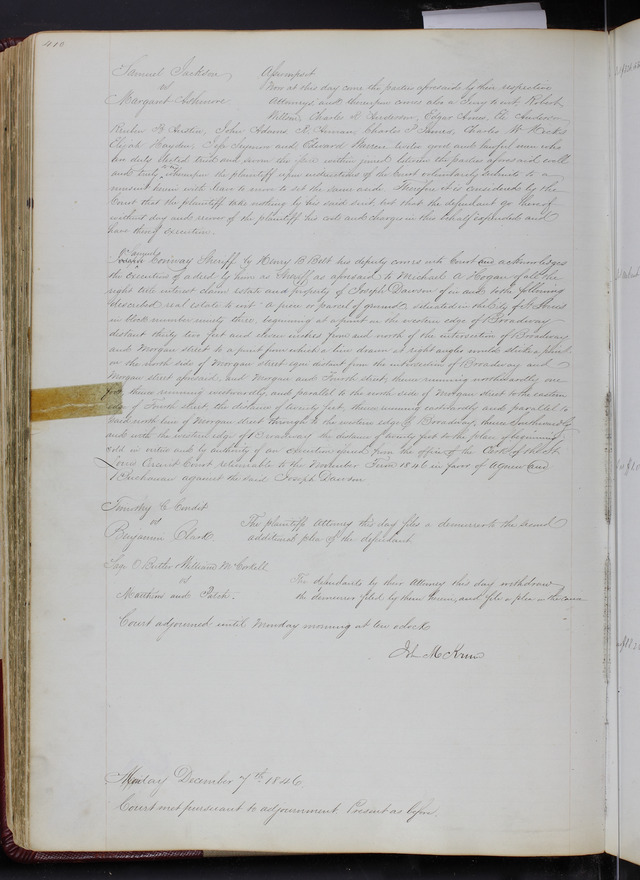 410
Samuel Jackson Assumpsit
vs Now at this day came the parties aforesaid by their respective
Margaret Ashmore Attorneys and thereupon comes also a Jury to wit, Robert
Wilson, Charles R. Anderson, Edgar Ames, E. Anderson
Reuben B Austin, John Adams, Charles F James, Charles W Hicks
Elijah Hayden, Seymour and Edward Warren twelve good and lawful men who
being duly elected tried and sworn the issue within joined between the parties aforesaid well
and truly to try whereupon the plaintiff upon instructions of the Court voluntarily submits to a
nonsuit herein with leave to move to set the same aside Therefore it is considered by the
Court that the plaintiff take nothing by his said suit but that the defendant go thereof
without day and recover of the plaintiff his costs and charges in this behalf expended and
have thereof execution.
Samuel
Conway Sheriff by Henry B Belt his deputy comes into Court and acknowledges
the execution of a deed by him as Sheriff as aforesaid to Michael A Hogan of all the
right title interest claim estate and property of Joseph Dawson of in and to the following
described real estate to wit: a piece or parcel of ground situated in the City of St Louis
in block number ninety three, beginning at a point on the western edge of Broadway
distant thirty two feet and eleven inches from and north of the intersection of Broadway
and Morgan street to a point from which a line drawn at right angles would strike a point
on the north side of Morgan street equi distant from the intersection of Broadway and
Morgan street aforesaid, and Morgan and Fourth street, thence running northwardly
thence running westwardly and parallel to the north side of Morgan street to the eastern
of Fourth street the distance of twenty feet, thence running eastwardly and parallel to
said north line of Morgan street through to the western edge of Broadway, thence Southwardly
and with the western edge of Broadway the distance of twenty feet to the place of beginning
sold in virtue and by authority of an execution issued from the office of the Clerk of the St
Louis Circuit Court returnable to the November Term 1846 in favor of
Buchanan against the said Joseph Dawson
Timothy C. Cundit
vs The plaintiffs Attorney this day files a demurrer to the second
Benjamin Clark additional plea of the defendant
Page O. Butler William McCorkell
vs The defendants by their Attorney this day withdraw
Matthews and Patch the demurrer filed by them herein, and file a plea in the same
Court adjourned until Monday morning at ten oclock
Jn M Krum
Monday December 7th 1846
Court met pursuant to adjournment. Present as before.